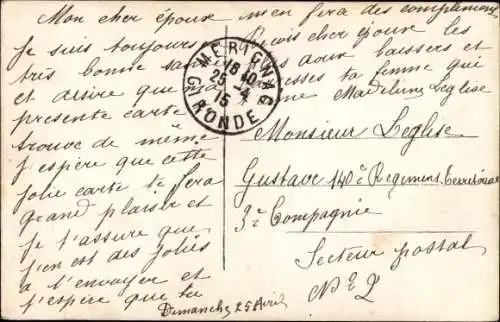 Mon cher époux
Je suis toujours
très bonne santé
et désire que la
présente carte
trouve de même
j'espère que cette
jolie carte te fera
grand plaisir et
je t'assure que
j'en est des jolies
à t'envoyer et
j'espère que tu
m'en fera des compliments
Reçois cher époux les
doux baisers et
caresses ta femme qui
t'aime Madeleine Léglise
MERIGNAC
18 40
25 -4
15
GIRONDE
Monsieur Léglise
Gustave 140e Régiment Territorial
3e Compagnie
Secteur postal
No 2
Dimanche 25 Avril